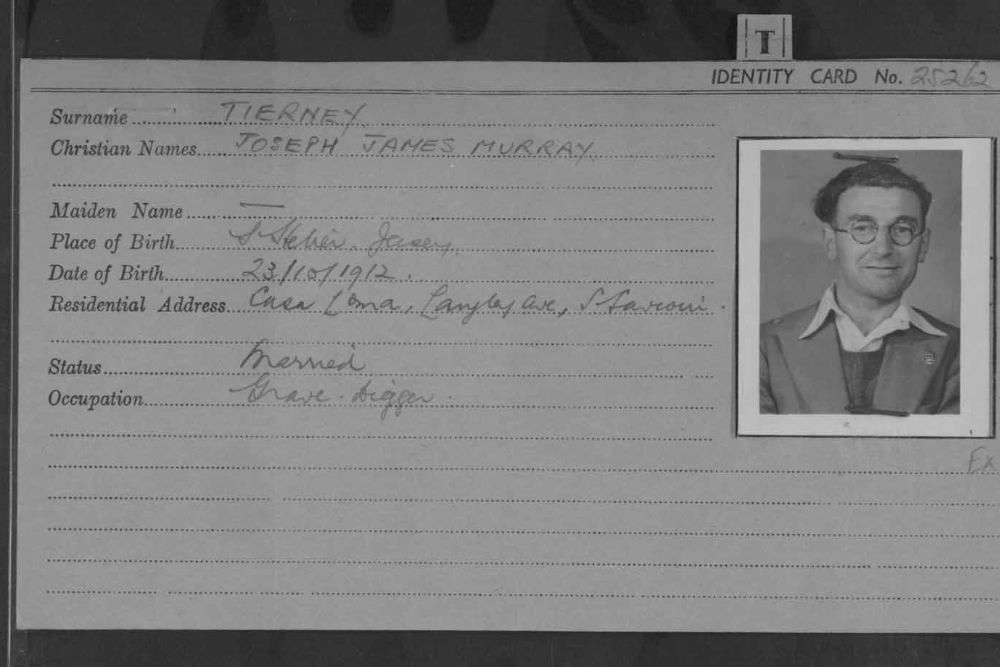 T
IDENTITY CARD No. 25262
Surname TIERNEY
Christian Names JOSEPH JAMES MURRAY
Maiden Name —
Place of Birth S. Helier. Jersey.
Date of Birth 23/10/1912.
Residential Address Casa Loma, Langley Ave, S. Saviour.
Status Married
Occupation Grave. Digger.
Ex